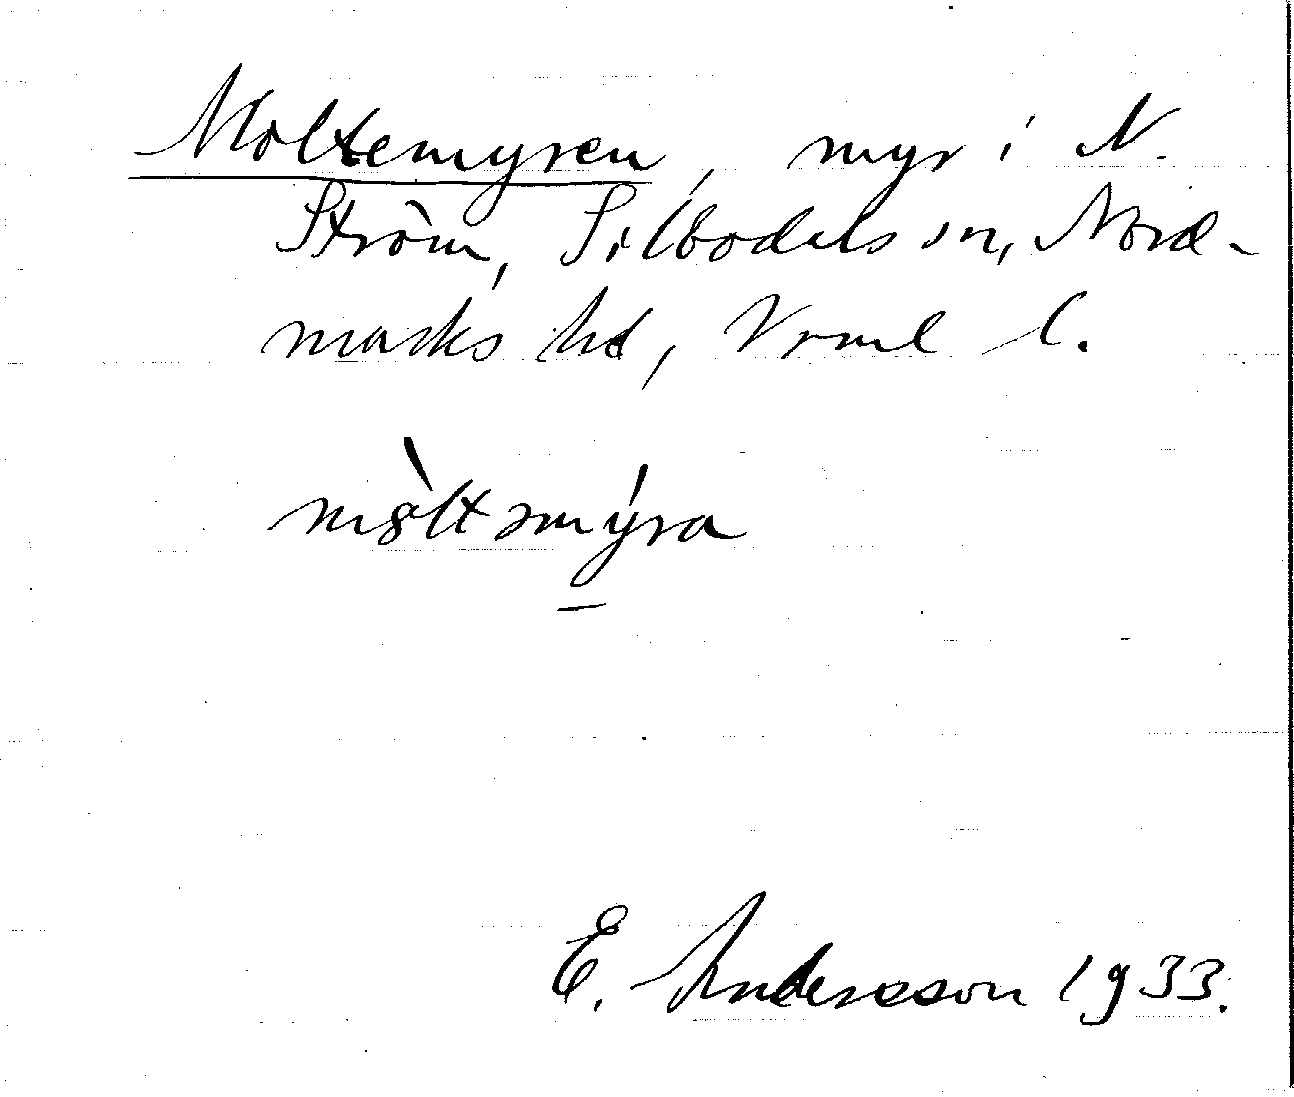 Moltemyren, myr i N.
Ström, Silbodals sn, Nord-
marks hd, Vrml l.
mò̤ltəmýra
E. Andersson 1933.